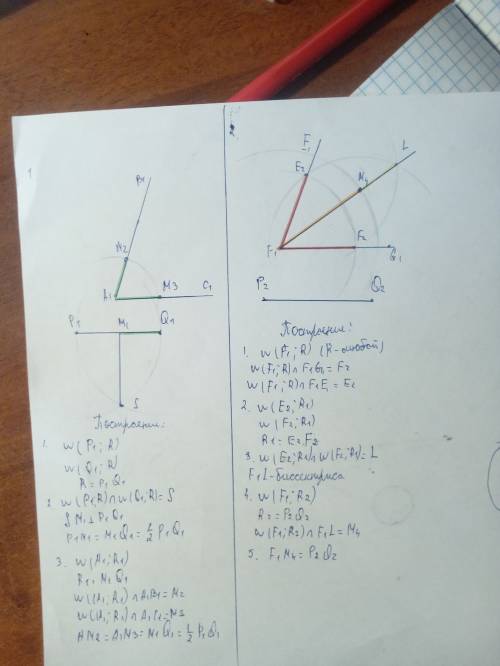 1
B1
M2
A1
M3
C1
P1
M1
Q1
S
Построение:
1. w(P1; R)
w(Q1; R)
R = P1Q1
2. w(P1; R) ∩ w(Q1; R) = S
SM1 ⊥ P1Q1
P1M1 = M1Q1 = 1/2 P1Q1
3. w(A1; R1)
R1 = M1Q1
w(A1; R1) ∩ A1B1 = M2
w(A1; R1) ∩ A1C1 = M3
AM2 = A1M3 = M1Q1 = 1/2 P1Q1
2
E1
E2
L
M4
F1
F2
G1
P2
Q2
Построение:
1. w(F1; R) (R-любой)
w(F1; R) ∩ F1G1 = F2
w(F1; R) ∩ F1E1 = E2
2. w(E2; R1)
w(F2; R1)
R1 = E2F2
3. w(E2; R1) ∩ w(F2; R1) = L
F1L-биссектриса
4. w(F1; R2)
R2 = P2Q2
w(F1; R2) ∩ F1L = M4
5. F1M4 = P2Q2